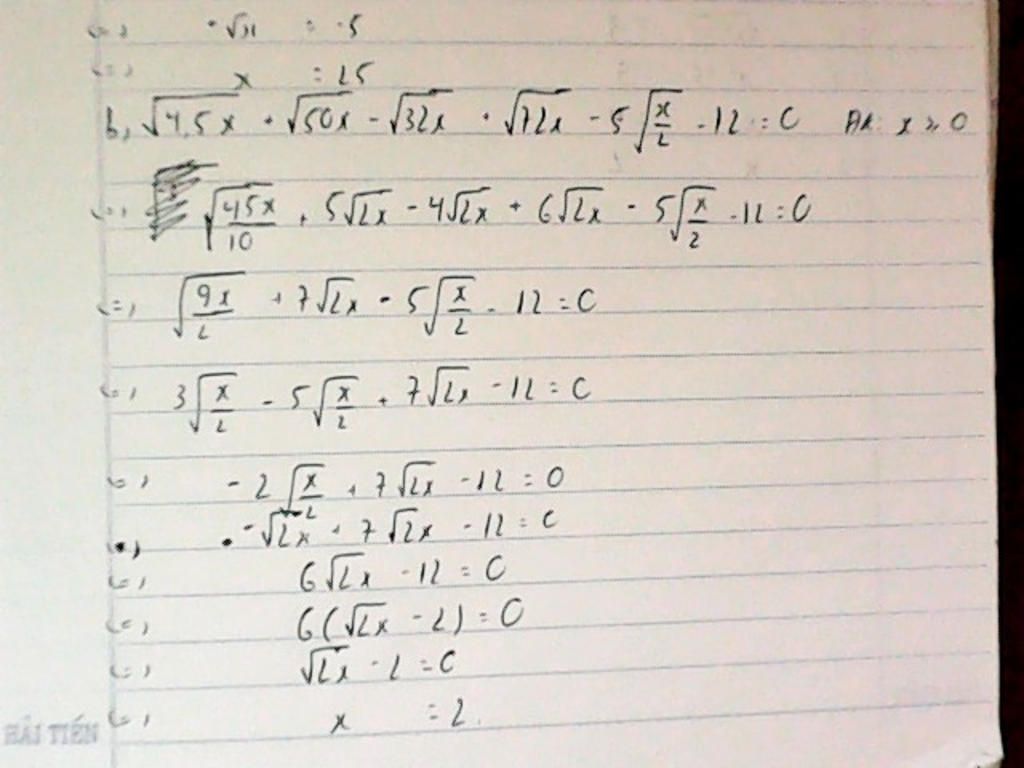 . √x = -5
<=> x = 25
b, √4,5x + √50x - √32x + √72x - 5√(x/2) - 12 = 0 ĐK: x ≥ 0
<=> √(45x/10) + 5√2x - 4√2x + 6√2x - 5√(x/2) - 12 = 0
<=> √(9x/2) + 7√2x - 5√(x/2) - 12 = 0
<=> 3√(x/2) - 5√(x/2) + 7√2x - 12 = 0
<=> -2√(x/2) + 7√2x - 12 = 0
<=> -√2x + 7√2x - 12 = 0
<=> 6√2x - 12 = 0
<=> 6(√2x - 2) = 0
<=> √2x - 2 = 0
<=> x = 2.
HẢI TIẾN